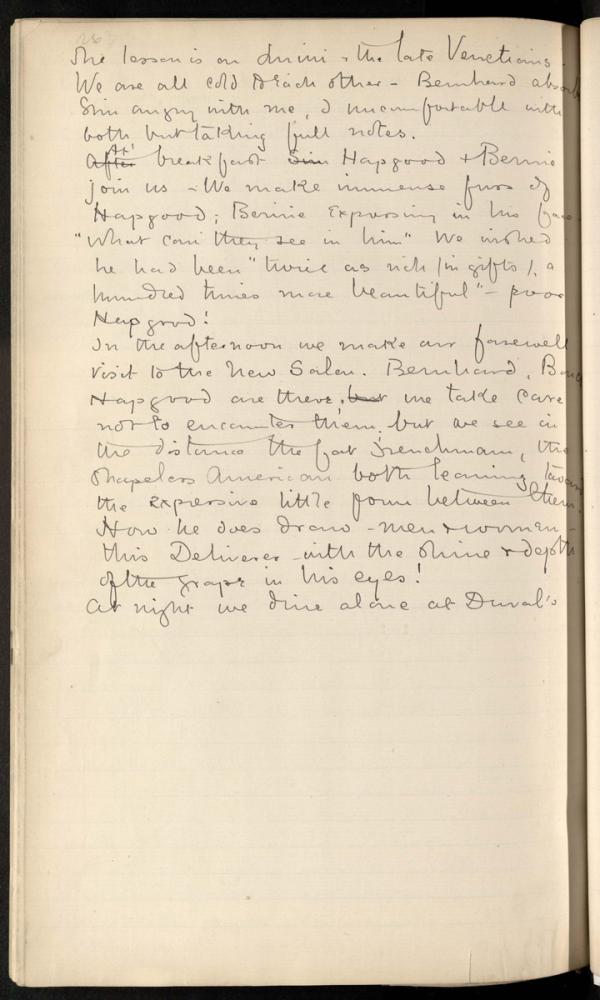 The lesson is on Luini & the late Venetians.
We are all cold to each other – Bernhard absorb
Sim angry with me, I uncomfortable with
both but taking full notes.
After At breakfast Sim Hapgood & Bernie
join us – We make immense fuss of
Hapgood; Bernie expressing in his face
"What can they see in him" We wished
he had been "twice as rich (in gifts), a
hundred times more beautiful" – poor
Hapgood!
In the afternoon we make our farewell
visit to the New Salon. Bernhard,
Hapgood are there, but we take care
not to encounter them, but we see in
the distance the fat Frenchman, the
shapeless American both leaning toward
the expressive little form between them.
How he does draw – men & women –
this Deliverer – with the shine & depth
of the grape in his eyes!
At night we dine alone at Duval's